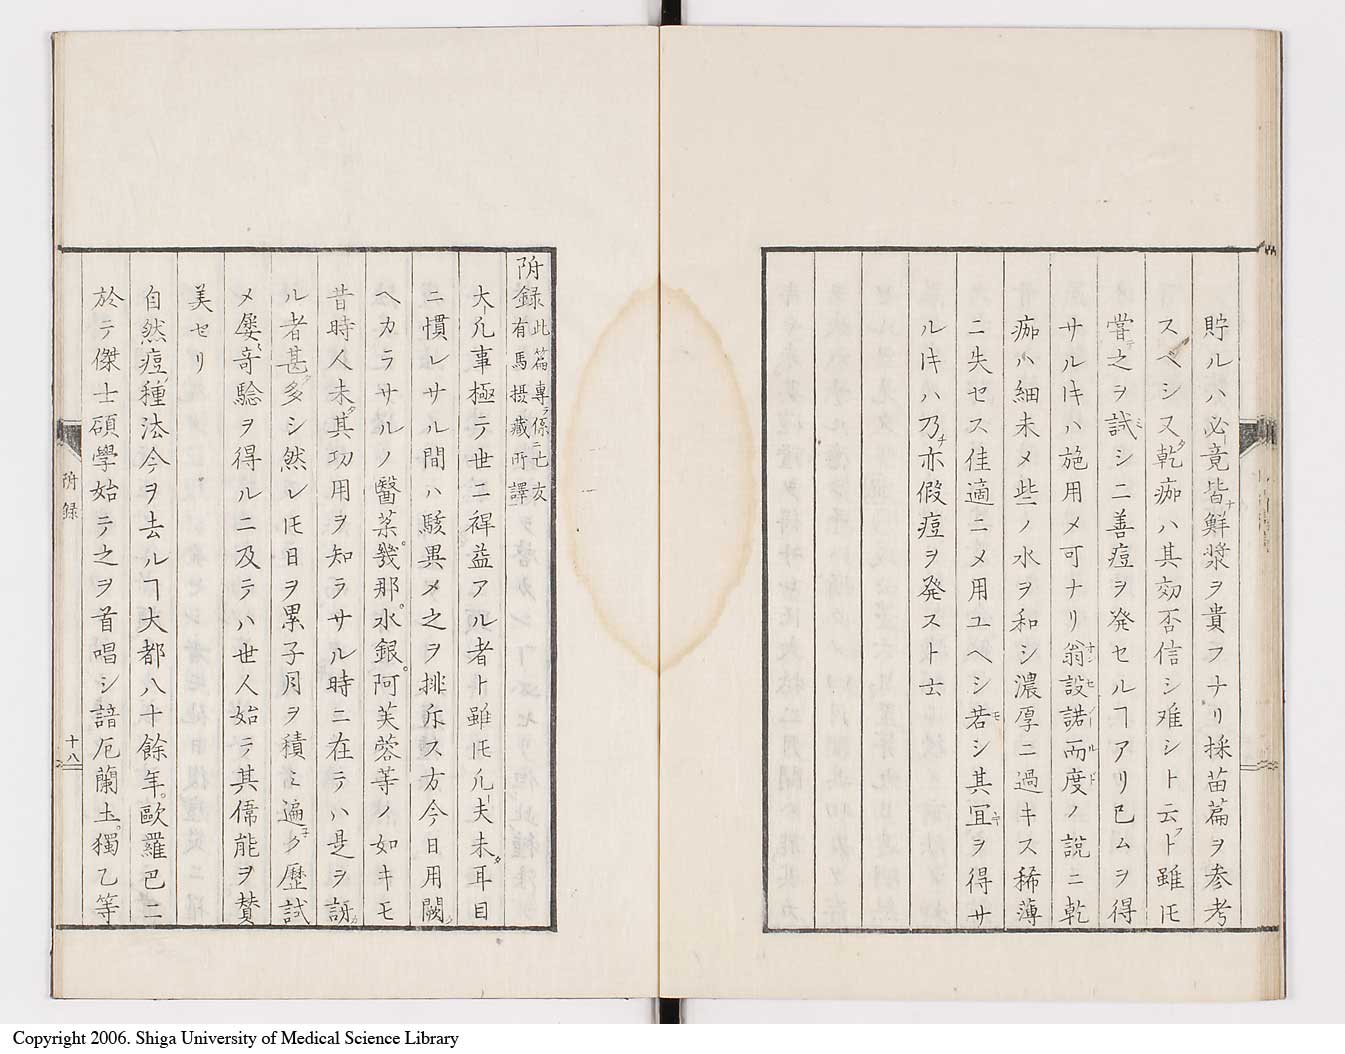 貯ルハ必竟皆鮮漿ヲ貴フナリ採苗篇ヲ参考
スベシ又乾痂ハ其効否信シ难シト云ト雖𪜈
嘗之ヲ試シニ善痘ヲ発セルヿアリ已ムヲ得
サル𪜈ハ施用メ可ナリ翁設諾而度ノ説ニ乾
痂ハ細末メ些ノ水ヲ和シ濃厚ニ過キス稀薄
ニ失セス佳適ニメ用ユヘシ若シ其宜ヲ得サ
ル𪜈ハ乃亦假痘ヲ発スト云
附録 此篇專係亡友
有馬摂蔵所譯
大凡事極テ世ニ裨益アル者ト雖𪜈凡夫未耳目
ニ慣レサル間ハ駭異メ之ヲ排斥ス方今日用闕
ヘカラサルノ醫薬幾那水銀阿芙蓉等ノ如キモ
昔時人未其功用ヲ知ラサル時ニ在テハ是ヲ訝
ル者甚多シ然レ𪜈日ヲ累子月ヲ積ミ遍ク歴試
メ屡竒驗ヲ得ルニ及テハ世人始テ其儒能ヲ賛
美セリ
自然痘種法今ヲ去ルヿ大都八十餘年歐羅巴ニ
於テ傑士碩學始テ之ヲ首唱シ諳厄蘭土獨乙等
附録
十八
Copyright 2006. Shiga University of Medical Science Library